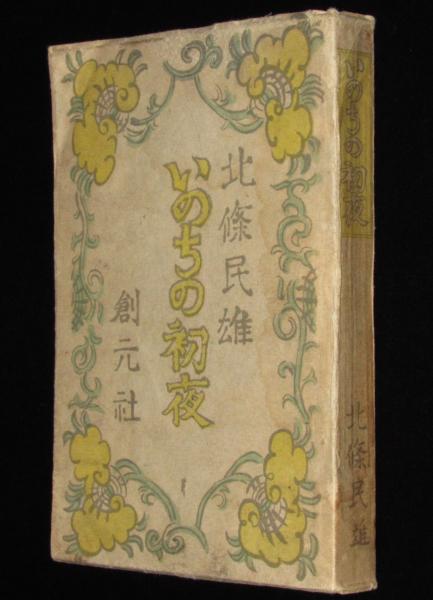 北條民雄
いのちの初夜
創元社
いのちの初夜
北條民雄